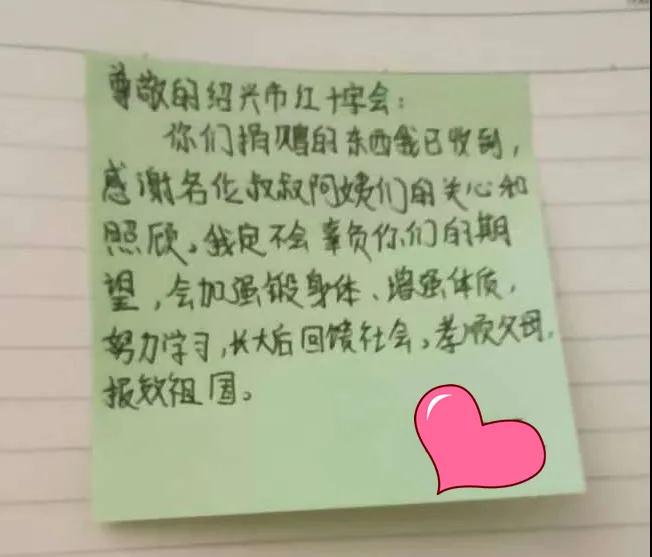 尊敬的绍兴市红十字会：
你们捐赠的东西我已收到，
感谢各位叔叔阿姨们的关心和
照顾。我定不会辜负你们的期
望，会加强锻身体、增强体质，
努力学习，长大后回馈社会。孝顺父母，
报效祖国。